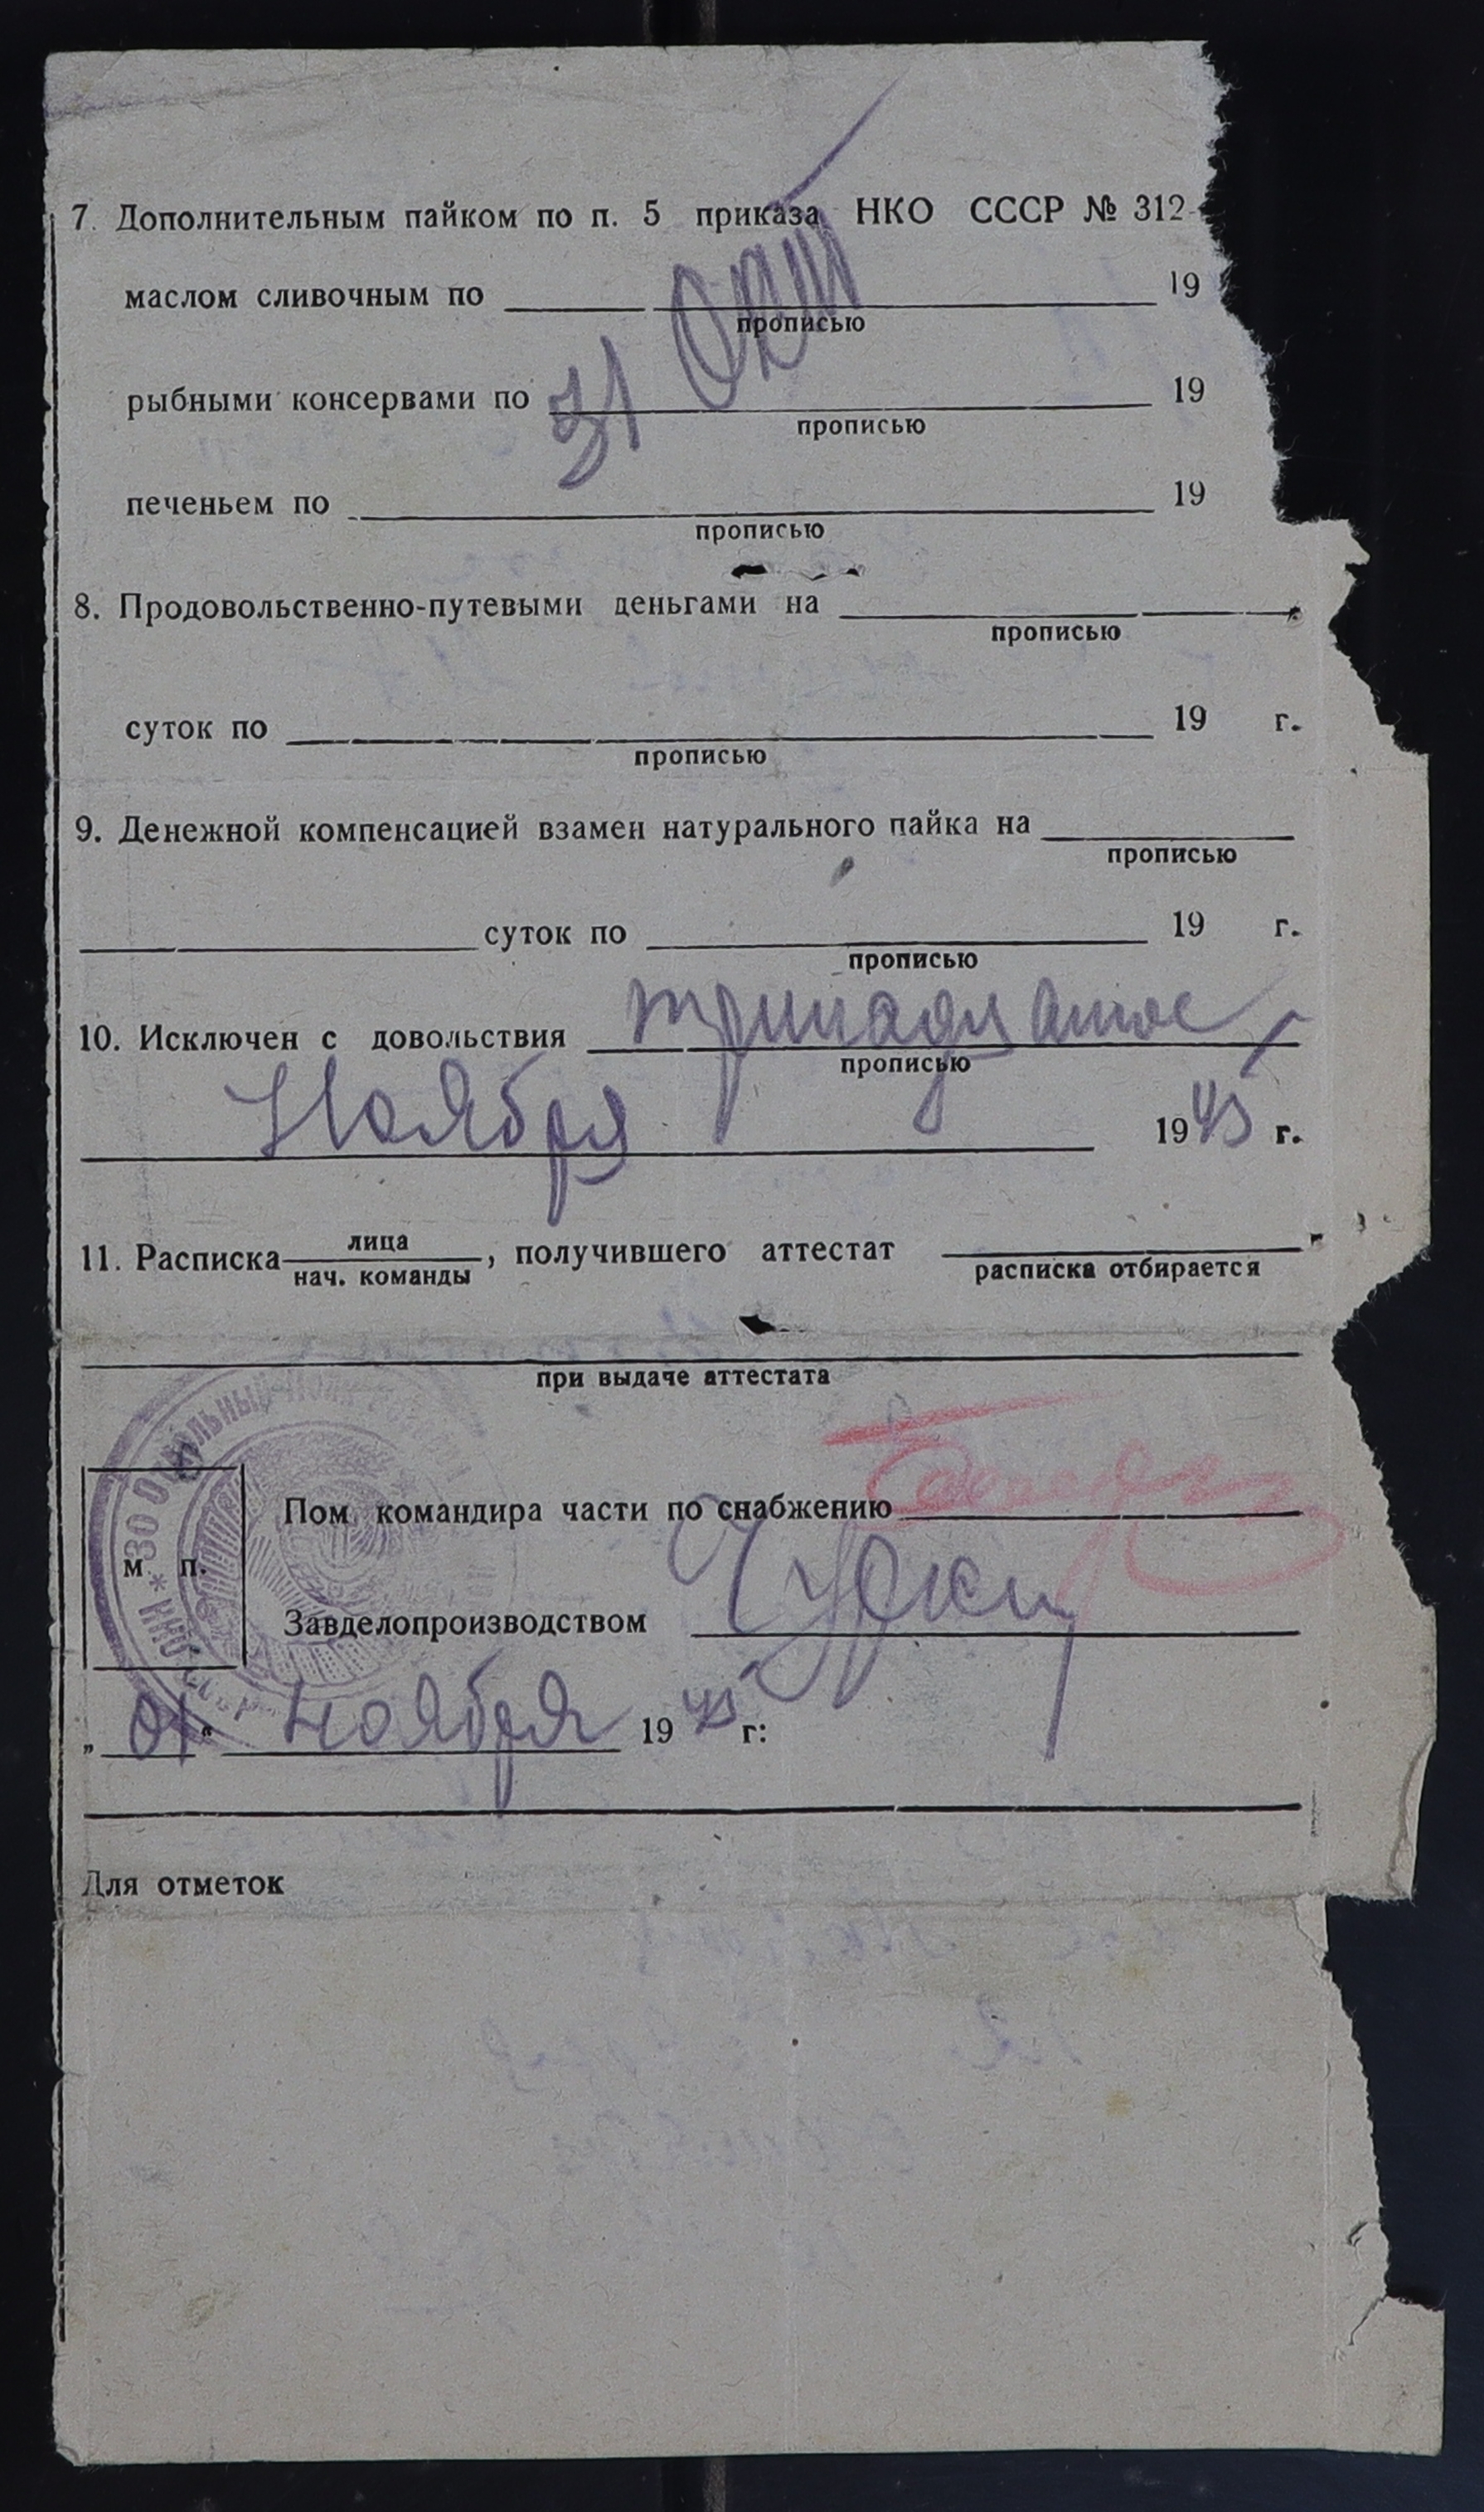 7. Дополнительным пайком по п. 5 приказа НКО СССР № 312-
маслом сливочным по 19
прописью
31 Окт
рыбными консервами по 19
прописью
печеньем по 19
прописью
8. Продовольственно-путевыми деньгами на
прописью
суток по 19 г.
прописью
9. Денежной компенсацией взамен натурального пайка на
прописью
суток по 19 г.
прописью
10. Исключен с довольствия тринадцатое
прописью
Ноября 1945 г.
11. Расписка лица
нач. команды, получившего аттестат
расписка отбирается
при выдаче аттестата
Пом. командира части по снабжению
м. п.
Завделопроизводством
„01“ ноября 1945 г:
Для отметок